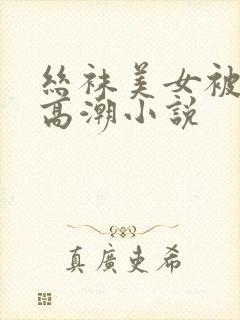 絲袜美女被
高潮小説
真廣吏希